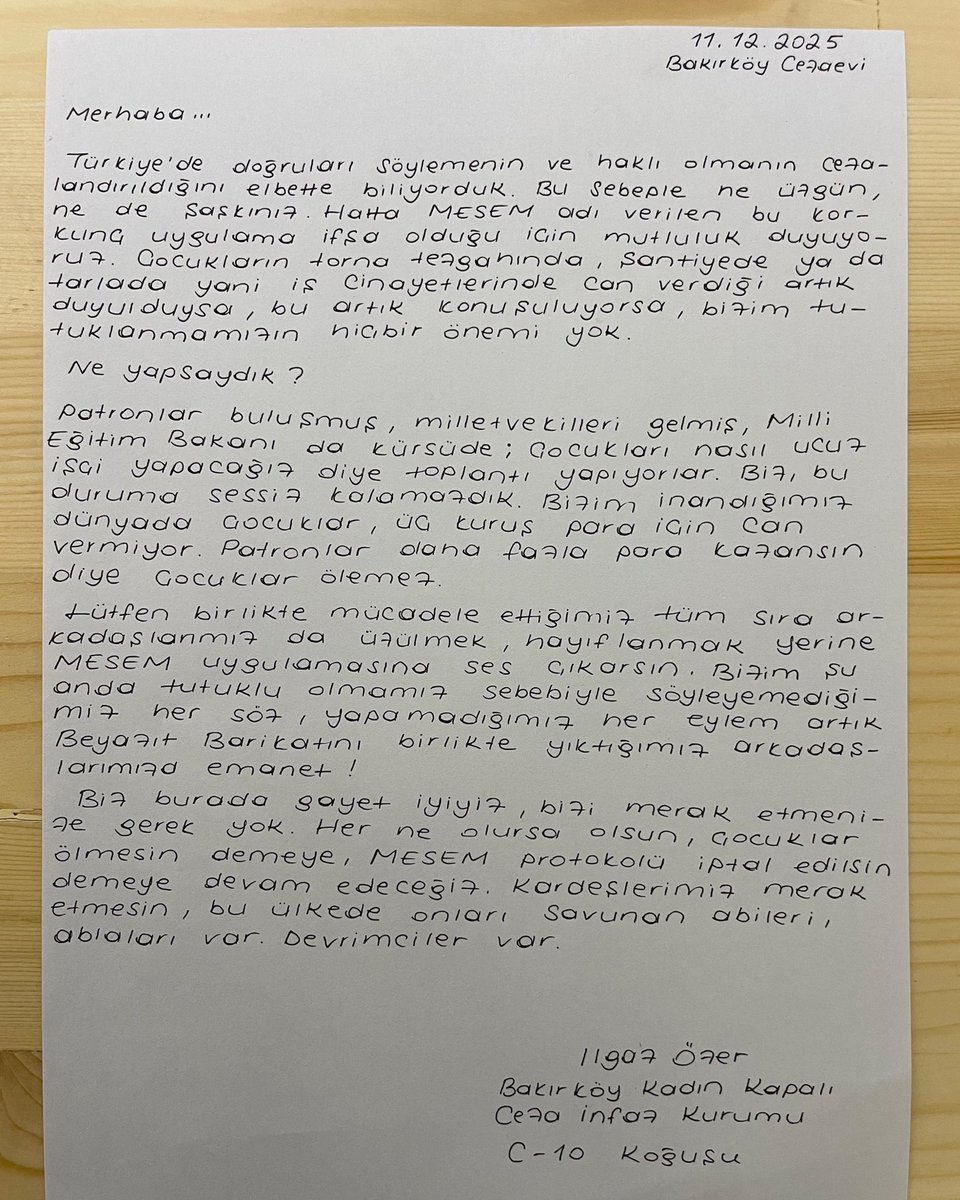 11.12.2025
Bakırköy Cezaevi
Merhaba...
Türkiye'de doğruları söylemenin ve haklı olmanın ceza-
landırıldığını elbette biliyorduk. Bu sebeple ne üzgün,
ne de şaşkınız. Hatta MESEM adı verilen bu kor-
kunç uygulama ifşa olduğu için mutluluk duyuyo-
ruz. Çocukların torna tezgahında, şantiyede ya da
tarlada yani iş cinayetlerinde can verdiği artık
duyulduysa, bu artık konuşuluyorsa, bizim tu-
tuklanmamızın hiçbir önemi yok.
Ne yapsaydık?
Patronlar buluşmuş, milletvekilleri gelmiş, Milli
Eğitim Bakanı da kürsüde; çocukları nasıl ucuz
işçi yapacağız diye toplantı yapıyorlar. Biz, bu
duruma sessiz kalamazdık. Bizim inandığımız
dünyada çocuklar, üç kuruş para için can
vermiyor. Patronlar daha fazla para kazansın
diye çocuklar ölemez.
Lütfen birlikte mücadele ettiğimiz tüm sıra ar-
kadaşlarımız da üzülmek, hayıflanmak yerine
MESEM uygulamasına ses çıkarsın. Bizim şu
anda tutuklu olmamız sebebiyle söyleyemediği-
miz her söz, yapamadığımız her eylem artık
Beyazıt Barikatını birlikte yıktığımız arkadaş-
larımıza emanet!
Biz burada gayet iyiyiz, bizi merak etmeni-
ze gerek yok. Her ne olursa olsun, çocuklar
ölmesin demeye, MESEM protokolü iptal edilsin
demeye devam edeceğiz. Kardeşlerimiz merak
etmesin, bu ülkede onları savunan abileri,
ablaları var. Devrimciler var.
Ilgaz Özer
Bakırköy Kadın Kapalı
Ceza İnfaz Kurumu
C-10 Koğuşu